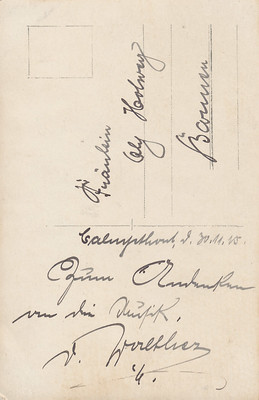 Fräulein
Elly Holweg
Barmen
Calmpthout, d. 30.11.15.
Zum Andenken
von die Musik.
d. Walther